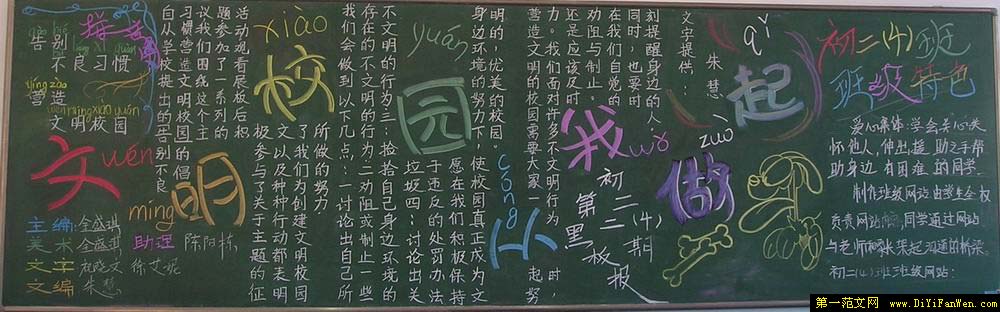 告别
不良习惯
营造
文明校园
wén
文
míng
明
xiào
校
yuán
园
cóng
从
wǒ
我
zuò
做
qǐ
起
主编:金盛琪
美术:金盛琪
助理 陈阳栋,
文字:
徐艾妮
文编 朱慧
自从学校提出的告别不良
习惯营造文明校园的倡
议我们围绕这个主
题参加了一系列的
活动观看展板后积
极参与了关于主题的征
文以及种种行动都表明
了我们为创建文明校园
所做的努力.
我们会做到以下几点:一讨论出自己所
存在的不文明的行为;二劝阻或制止一些
不文明的行为;三:捡拾自己身边环境的
垃圾四:讨论出关
于违反的处罚办法
愿在我们积极保持
身边环境的努力下,使校园真正成为文
明的,优美的校园.
营造文明的校园需要大家一起努
力.我们面对许多不文明行为时,
还是应该及时
劝阻与制止
在我们自觉的
同时,也要时
刻提醒身边的人
文字提供:
朱慧
初二(4)
第二期
黑板报
初二(4)班
班级特色
爱心集体:学会关心,关
怀他人,伸出援助之手帮
助身边有困难的同学.
制作班级网站由学生全权
负责网站,同学通过网站
与老师和家长架起沟通的桥梁.
初二(4)班班级网站:
第一范文网 www.DiYiFanWen.com